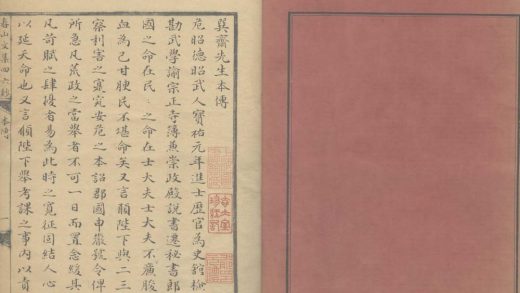 巽齋先生本傳
危昭德昭武人寶祐元年進士歷官為史館檢
勘武學諭宗正寺簿兼崇政殿說書遷秘書郎
國之命在民〻之命在士大夫士大夫不廉朘
血為己甘腴民不堪命矣又言願陛下與二三
察利害之實究安危之本詔郡國申嚴號令俾
所急凡荒政之當舉者不可一日而置念緩具
凡苛賦之肆擾者易為此時之寬征固結人心
以延天命也又言願陛下舉考課之事內以責
春山文集四六鈔 本傳 一